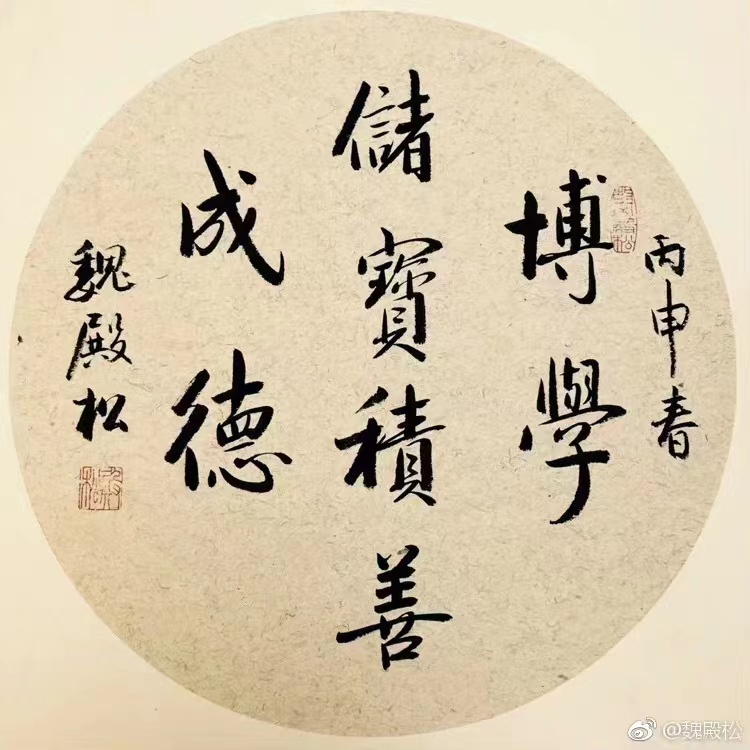 丙申春
博學
儲寶積善
成德
魏殿松
@魏殿松